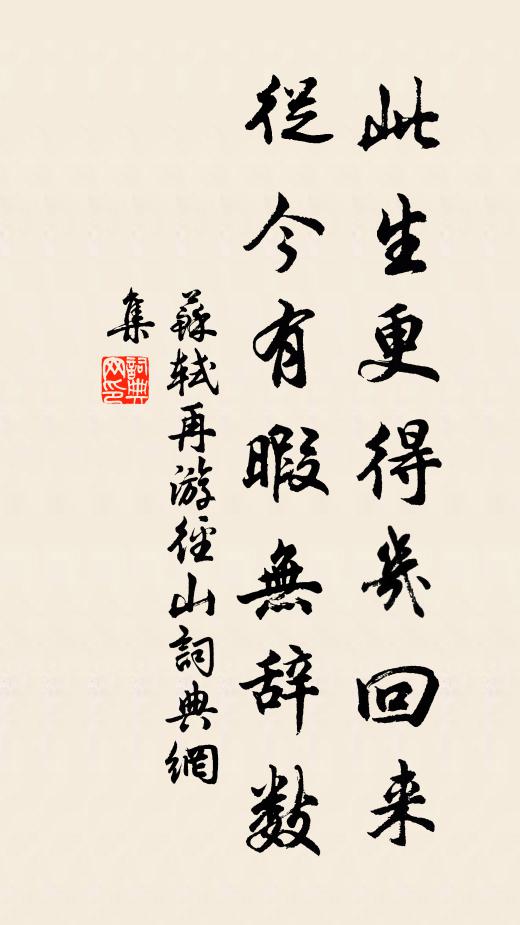 此生更得幾回来
從今有暇無辞數
蘇軾再游徑山詞典網
集
詞典
网印